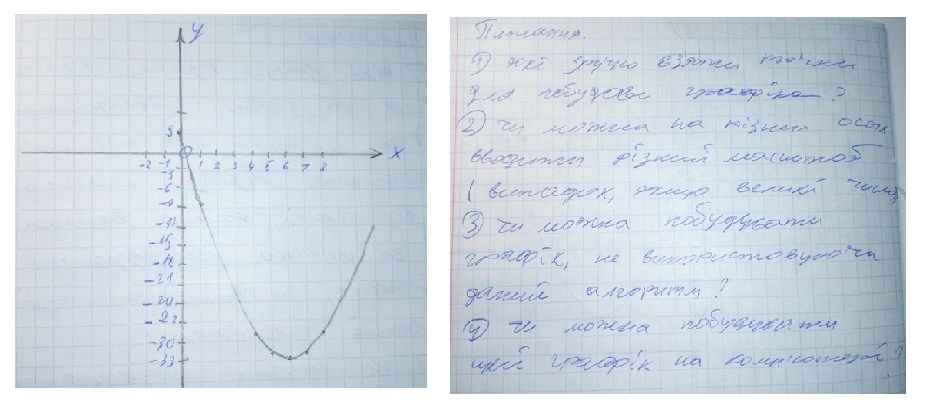 y
3
-2 -1 1 2 3 4 5 6 7 8 x
-1
-3
-6
-9
-12
-15
-18
-21
-24
-27
-30
-33
Питання.
1) які зручно взяти точки
для побудови графіка?
2) чи можна на різних осях
вводити різний масштаб
(випадок, якщо великі числа
3) чи можна побудувати
графік, не використовуючи
даний алгоритм?
4) чи можна побудувати
цей графік на комп'ютері?